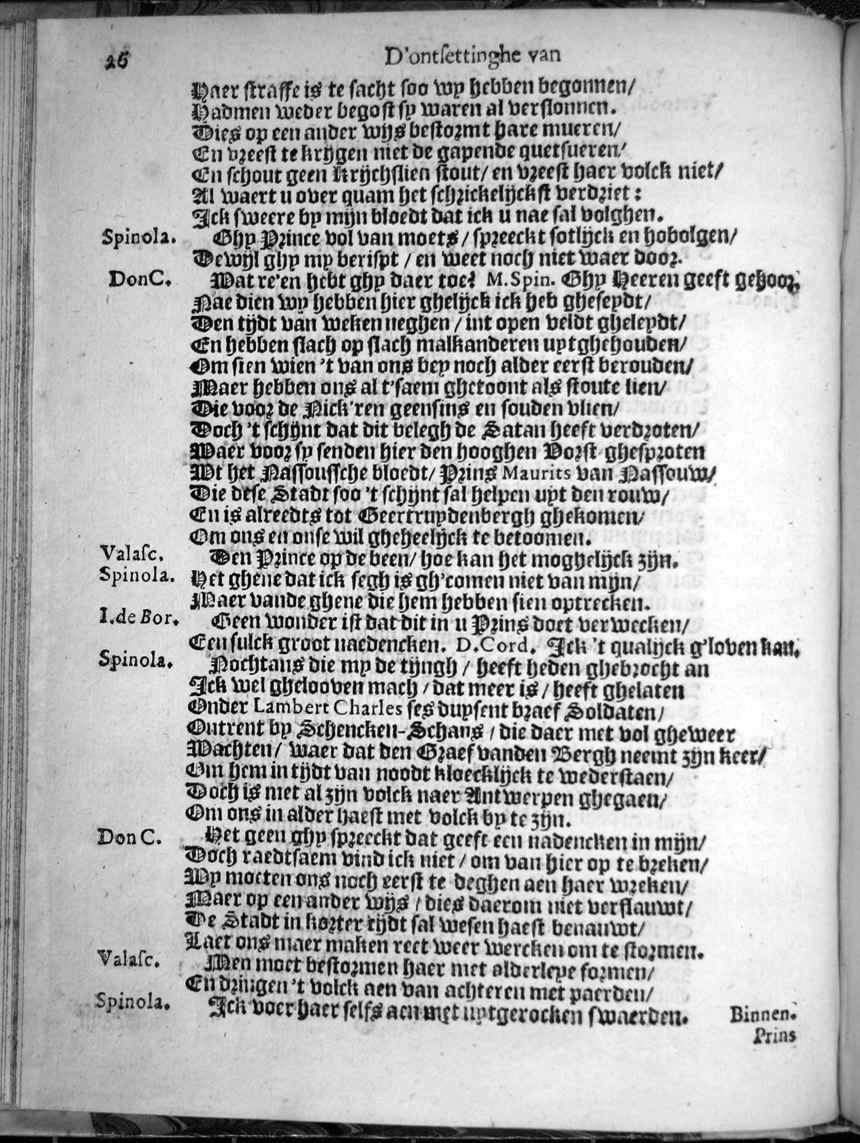 26 D'ontsettinghe van
Haer straffe is te sacht soo wy hebben begonnen/
Hadmen weder begost sy waren al verslonnen.
Dies op een ander wijs bestormt hare mueren/
En vreest te krijgen niet de gapende quetsueren/
En schout geen Krijchslien stout/ en vreest haer volck niet/
Al waert u over quam het schrickelijckst verdriet:
Ick sweere by mijn bloedt dat ick u nae sal volghen.
Spinola. Ghy Prince vol van moets/ spreeckt sotlijck en hobolgen/
Dewijl ghy my berispt/ en weet noch niet waer door.
Don C. Wat re'en hebt ghy daer toe? M. Spin. Ghy Heeren geeft gehoor,
Nae dien wy hebben hier ghelijck ick heb gheseydt/
Den tijdt van weken neghen/ int open veldt gheleydt/
En hebben slach op slach malkanderen uytghehouden/
Om sien wien 't van ons bey noch alder eerst berouden/
Maer hebben ons al t'saem ghetoont als stoute lien/
Die voor de Nick'ren geensins en souden vlien/
Doch 't schijnt dat dit belegh de Satan heeft verdroten/
Waer voor sy senden hier den hooghen Vorst ghesproten
Wt het Nassousche bloedt/ Prins Maurits van Nassouw/
Die dese Stadt soo 't schijnt sal helpen uyt den rouw/
En is alreedts tot Geertruydenbergh ghekomen/
Om ons en onse wil gheheelijck te betoomen.
Valasc. Den Prince op de been/ hoe kan het moghelijck zijn.
Spinola. Het ghene dat ick segh is gh'comen niet van mijn/
Maer vande ghene die hem hebben sien optrecken.
I. de Bor. Geen wonder ist dat dit in u Prins doet verwecken/
Een sulck groot naedencken. D. Cord. Ick 't qualijck g'loven kan.
Spinola. Nochtans die my de tijngh/ heeft heden ghebrocht an
Ick wel ghelooven mach/ dat meer is/ heeft ghelaten
Onder Lambert Charles ses duysent braef Soldaten/
Ontrent by Schencken-Schans/ die daer met vol gheweer
Wachten/ waer dat den Graef vanden Bergh neemt zijn keer/
Om hem in tijdt van noodt kloecklijck te wederstaen/
Doch is met al zijn volck naer Antwerpen ghegaen/
Om ons in alder haest met volck by te zijn.
Don C. Het geen ghy spreeckt dat geeft een nadencken in mijn/
Doch raedtsaem vind ick niet/ om van hier op te breken/
Wy moeten ons noch eerst te deghen aen haer wreken/
Maer op een ander wijs/ dies daerom niet verflauwt/
De Stadt in korter tijdt sal wesen haest benauwt/
Laet ons maer maken reet weer wercken om te stormen.
Valasc. Men moet bestormen haer met alderleye formen/
En dringen 't volck aen van achteren met paerden/
Spinola. Ick voer haer selfs aen met uytgerocken swaerden. Binnen.
Prins